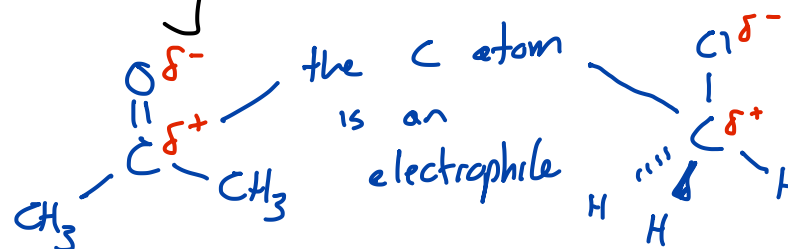 O δ-
C δ+
CH3
CH3
the C atom
is an
electrophile
Cl δ-
C δ+
H
H
H